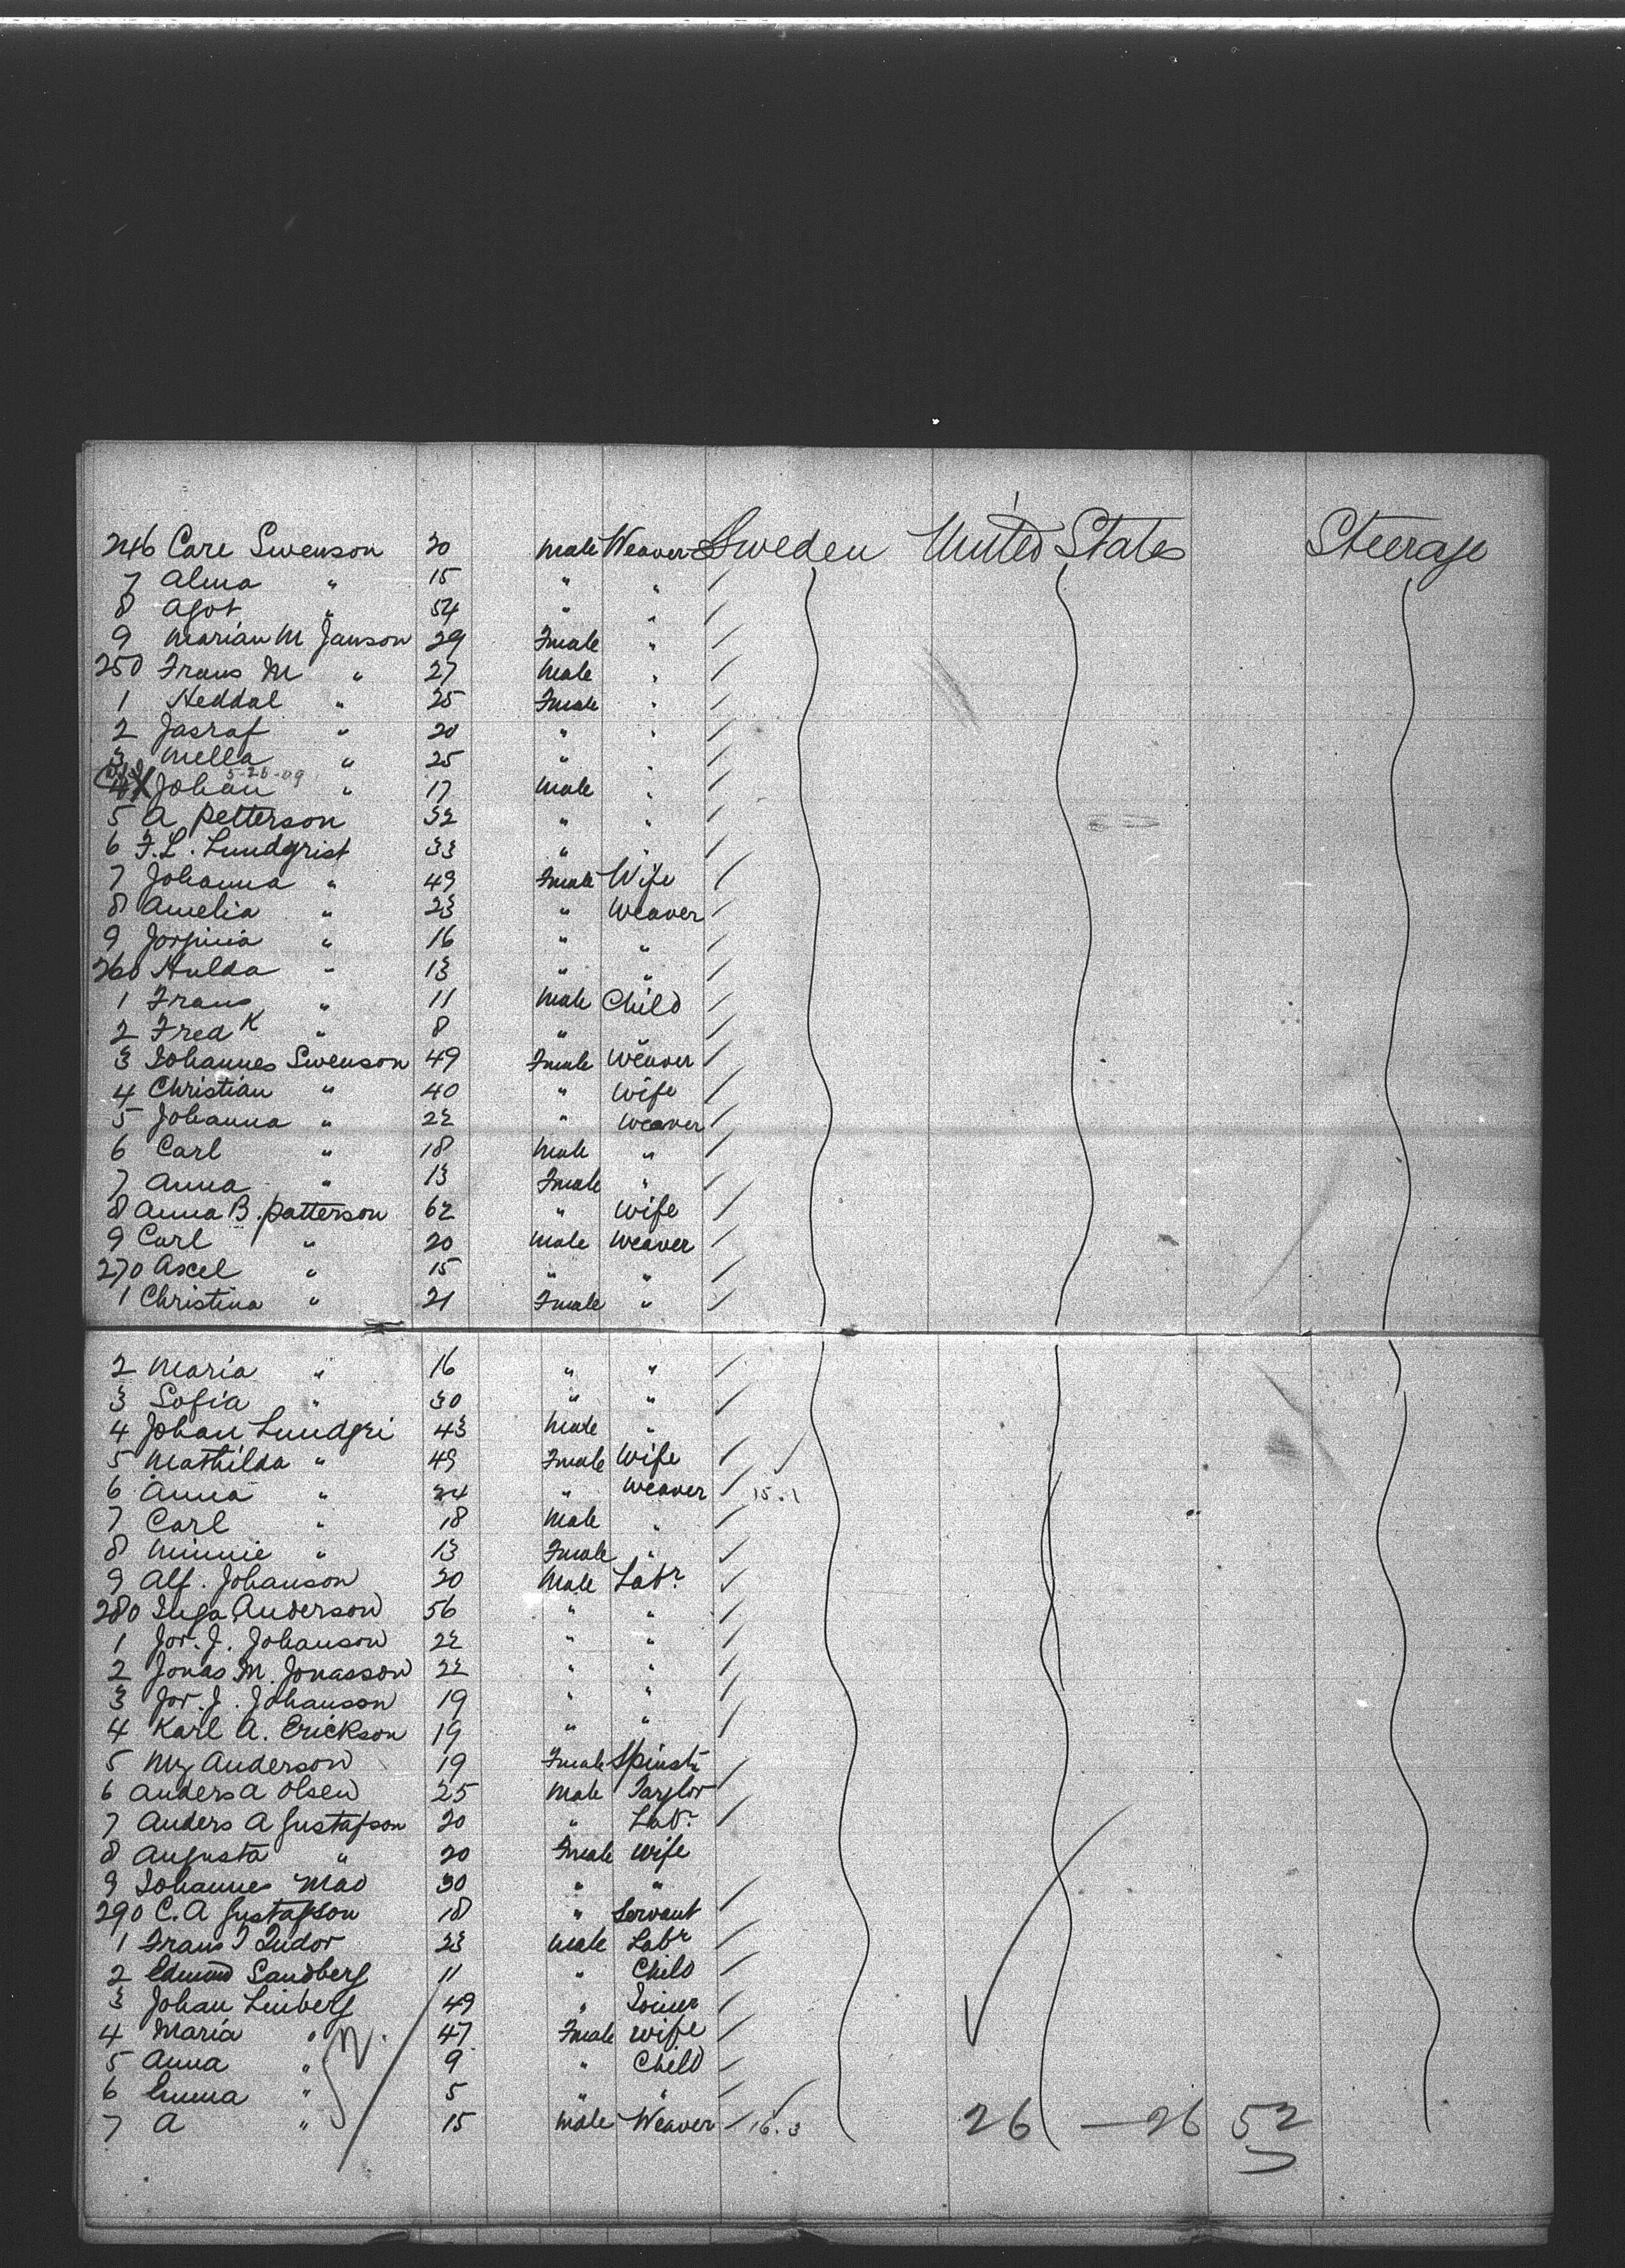 246 Care Swenson 20 Male Weaver Sweden United States Steerage
7 Alma " 15 " "
8 Agot " 54 " "
9 Marian M Janson 29 Female "
250 Frans M " 27 Male "
1 Heddal " 25 Female "
2 Jasraf " 20 " "
3 Mella " 25 " "
5-26-09
4 X Johan " 17 Male "
5 A. Petterson 32 " "
6 F. L. Lundgrist 33 " "
7 Johanna " 49 Female Wife
8 Amelia " 23 " Weaver
9 Jorginia " 16 " "
260 Hulda " 13 " "
1 Frans " 11 Male Child
2 Fred K " 8 " "
3 Johannes Swenson 49 Female Weaver
4 Christian " 40 " Wife
5 Johanna " 22 " Weaver
6 Carl " 18 Male "
7 Anna " 13 Female "
8 Anna B. Patterson 62 " Wife
9 Carl " 20 Male Weaver
270 Axel " 15 " "
1 Christina " 21 Female "
2 Maria " 16 " "
3 Sofia " 30 " "
4 Johan Lundgri 43 Male "
5 Mathilda " 49 Female Wife
6 Anna " 24 " Weaver 15.1
7 Carl " 18 Male "
8 Minnie " 13 Female "
9 Alf. Johanson 20 Male Labr.
280 Inga Anderson 56 " "
1 Jor. J. Johanson 22 " "
2 Jonas M. Jonasson 22 " "
3 Jor. J. Johanson 19 " "
4 Karl A. Erickson 19 " "
5 My Anderson 19 Female Spinstr
6 Anders A Olsen 25 Male Taylor
7 Anders A Gustafson 20 " Labr.
8 Augusta " 20 Female Wife
9 Johannes Mad 30 " "
290 C. A Gustafson 18 " Servant
1 Frans J Tudor 23 Male Labr
2 Edmund Sandberg 11 " Child
3 Johan Linberg 49 " Joiner
4 Maria " 47 Female Wife
5 Anna " 9 " Child
6 Emma " 5 " "
7 A " 15 Male Weaver 16.3 26 — 26 52